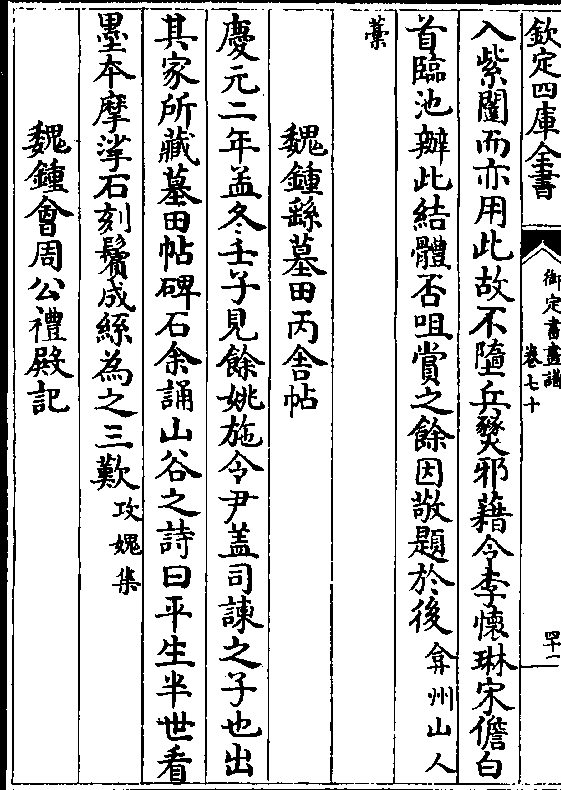 欽定四庫全書
御定書畫譜
卷七十
四十一
入紫闥而亦用此故不墮兵燹邪藉令李懷琳宋儋白
首臨池辦此結體否咀賞之餘因敬題於後弇州山人
藁
魏鍾繇墓田丙舍帖
慶元二年孟冬壬子見餘姚施令尹盖司諫之子也出
其家所藏墓田帖碑石余誦山谷之詩曰平生半世看
墨本摩挲石刻鬢成絲為之三歎攻媿集
魏鍾會周公禮殿記